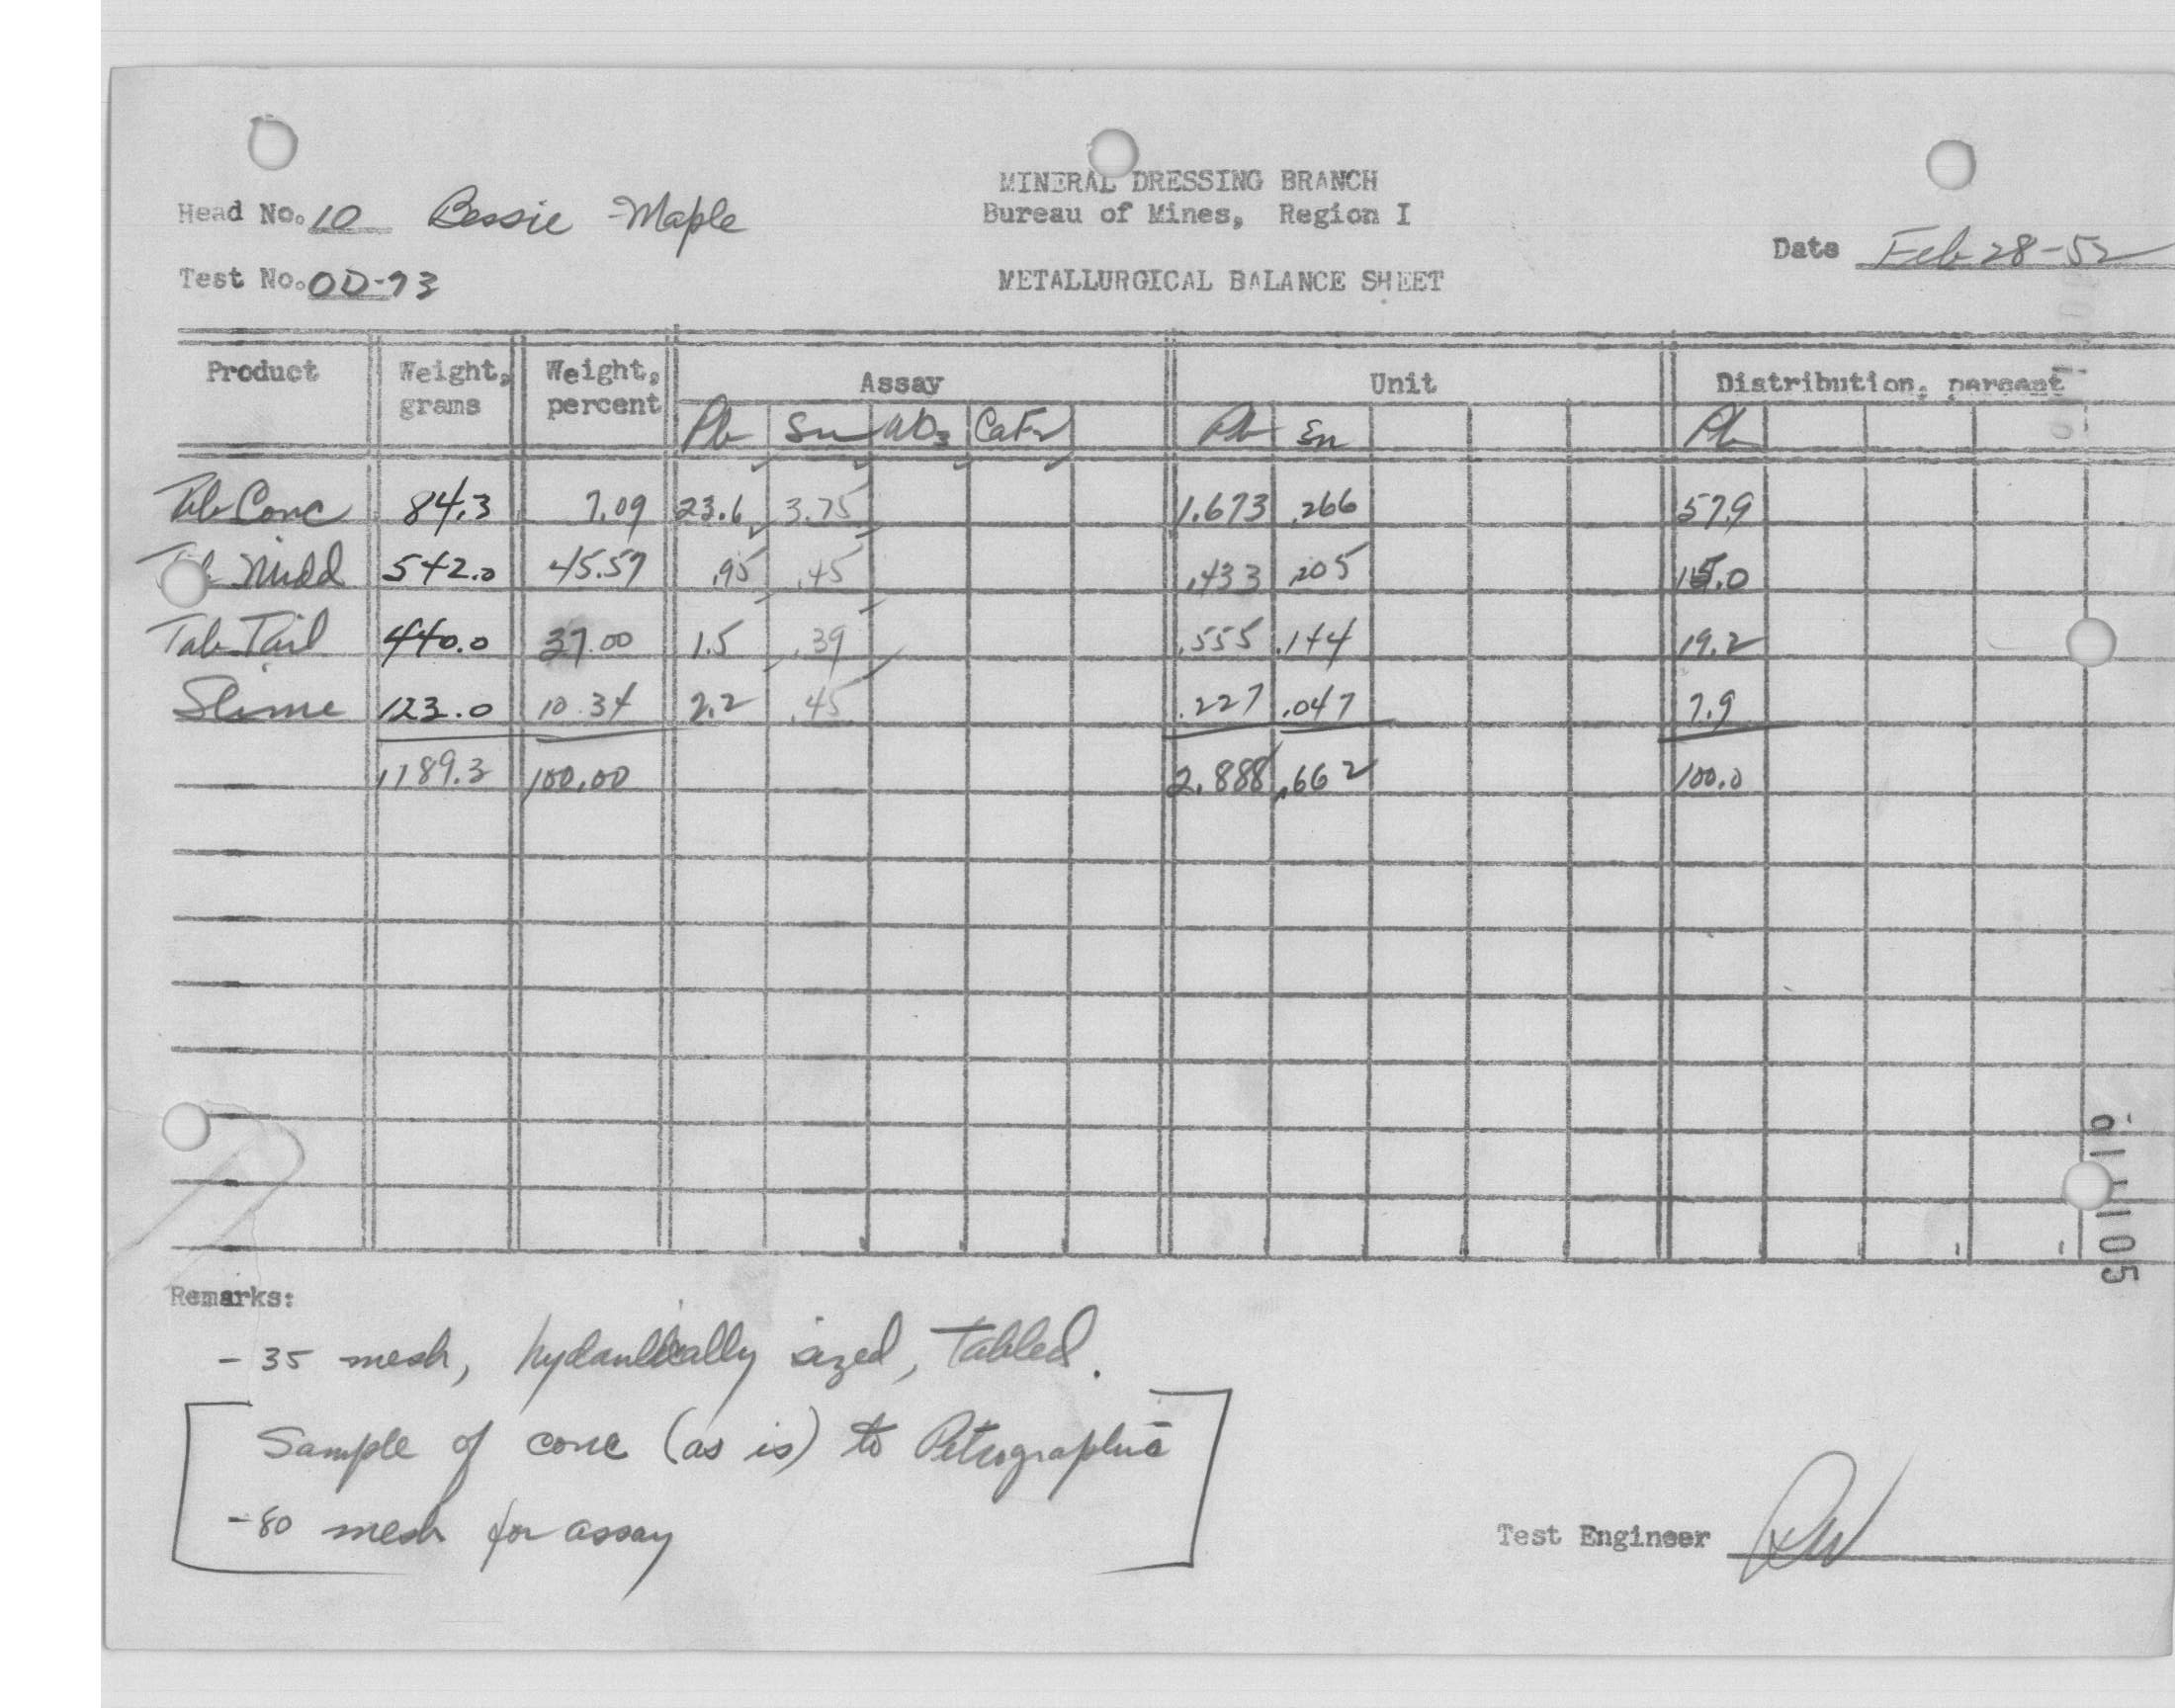 MINERAL DRESSING BRANCH
Head No. 10 Bessie Maple Bureau of Mines, Region I
Date Feb 28-52
Test No. OD-73 METALLURGICAL BALANCE SHEET
Product Weight, grams Weight, percent Assay Unit Distribution, percent
Pb Sn WO3 CaF2 Pb Sn Pb
Tab Conc 84.3 7.09 23.6 3.75 1.673 .266 57.9
Tab Midd 542.0 45.57 .95 .45 .433 .205 15.0
Tab Tail 440.0 37.00 1.5 .39 .555 .144 19.2
Slime 123.0 10.34 2.2 .45 .227 .047 7.9
1189.3 100.00 2.888 .662 100.0
Remarks:
- 35 mesh, hydaulically sized, tabled.
Sample of conc (as is) to Petrographic
-80 mesh for assay
Test Engineer RW